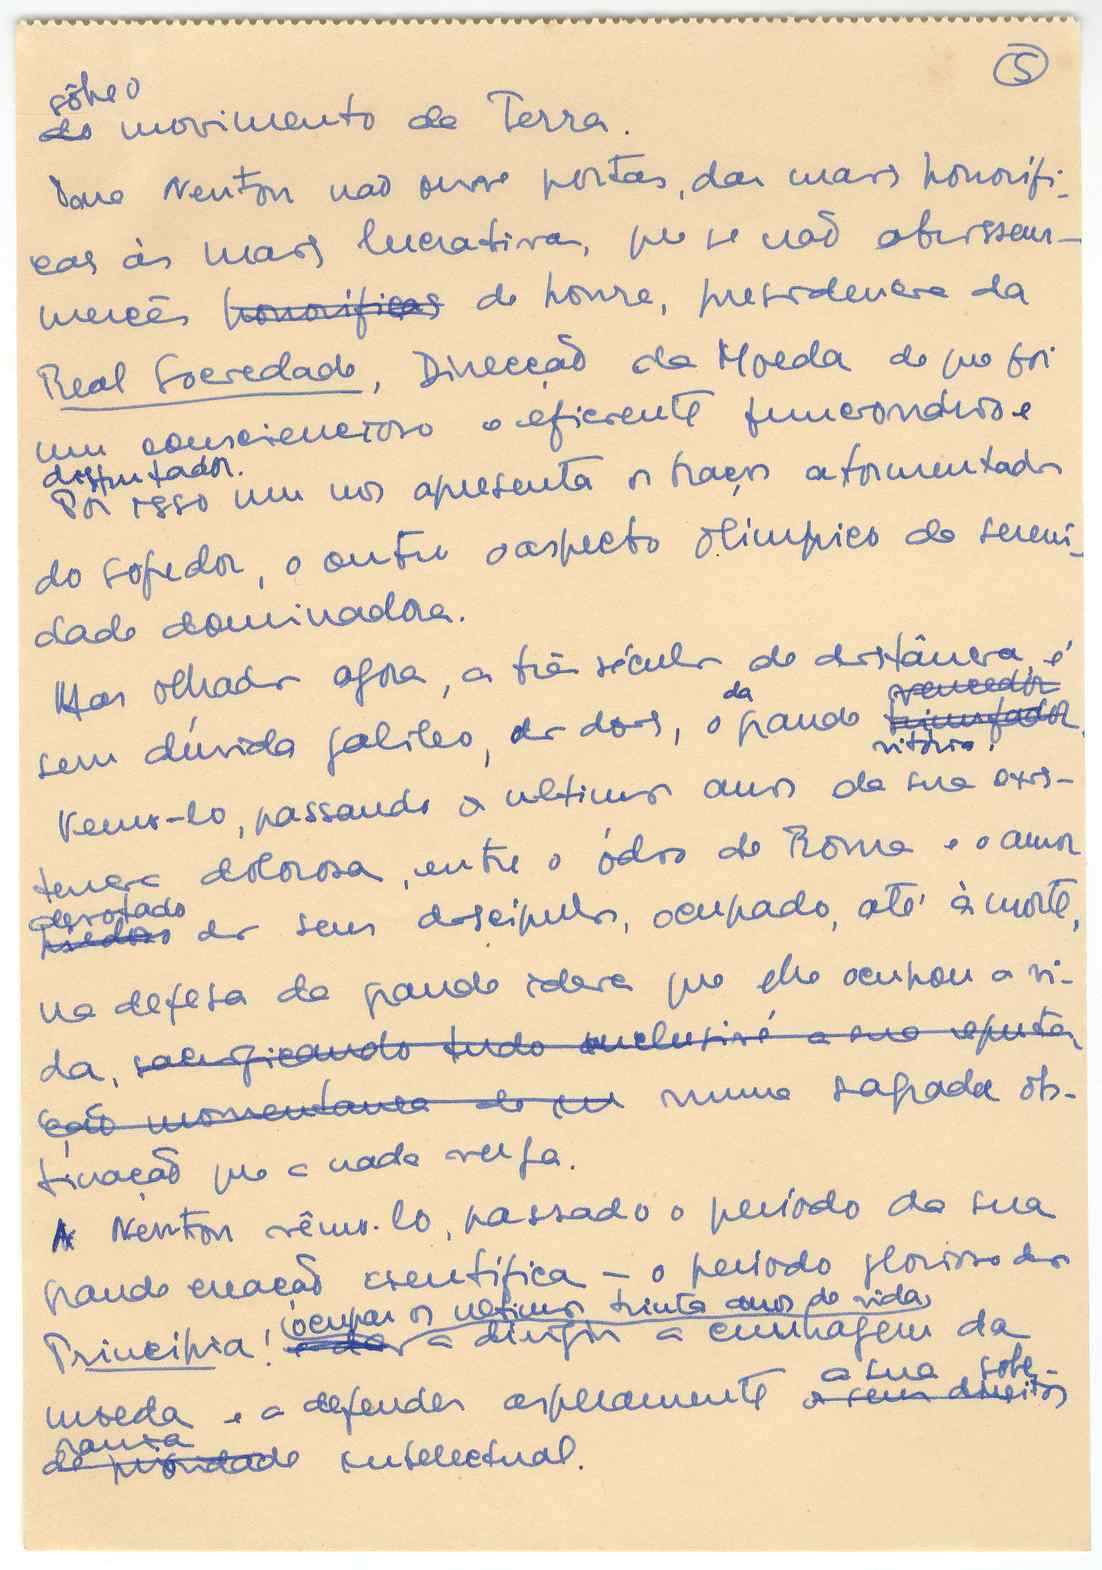 5
sôbre o
do movimento da Terra.
Para Newton não houve portas, das mais honorífi-
cas às mais lucrativas, que se não abrissem –
mercês honoríficas de honra, presidência da
Real Sociedade, Direcção da Moeda de que foi
um consciencioso e eficiente funcionário e
disfrutador.
Por isso um nos apresenta os traços atormentados
do sofredor, o outro o aspecto olímpico de sereni-
dade dominadora.
Mas olhados agora, a três séculos de distância, é
vencedor
da
sem dúvida Galileo, dos dois, o grande triunfador.
vitória.
Vemo-lo, passando os ultimos anos da sua exis-
tencia dolorosa, entre o ódio de Roma e o amor
devotado
dos seus discipulos, ocupado, até à morte,
na defesa da grande ideia que lhe ocupou a vi-
da, sacrificando tudo inclusivé a sua reputa
ção momentanea de numa sagrada obs-
tinação que a nada verga.
A Newton vêmo-lo, passado o período da sua
grande criação cientifica – o período glorioso dos
ocupar os ultimos trinta anos de vida,
Principia! a dirigir a cunhagem da
moeda e a defender asperamente os seus direitos
a sua sobe-
rania
de prioridade intelectual.